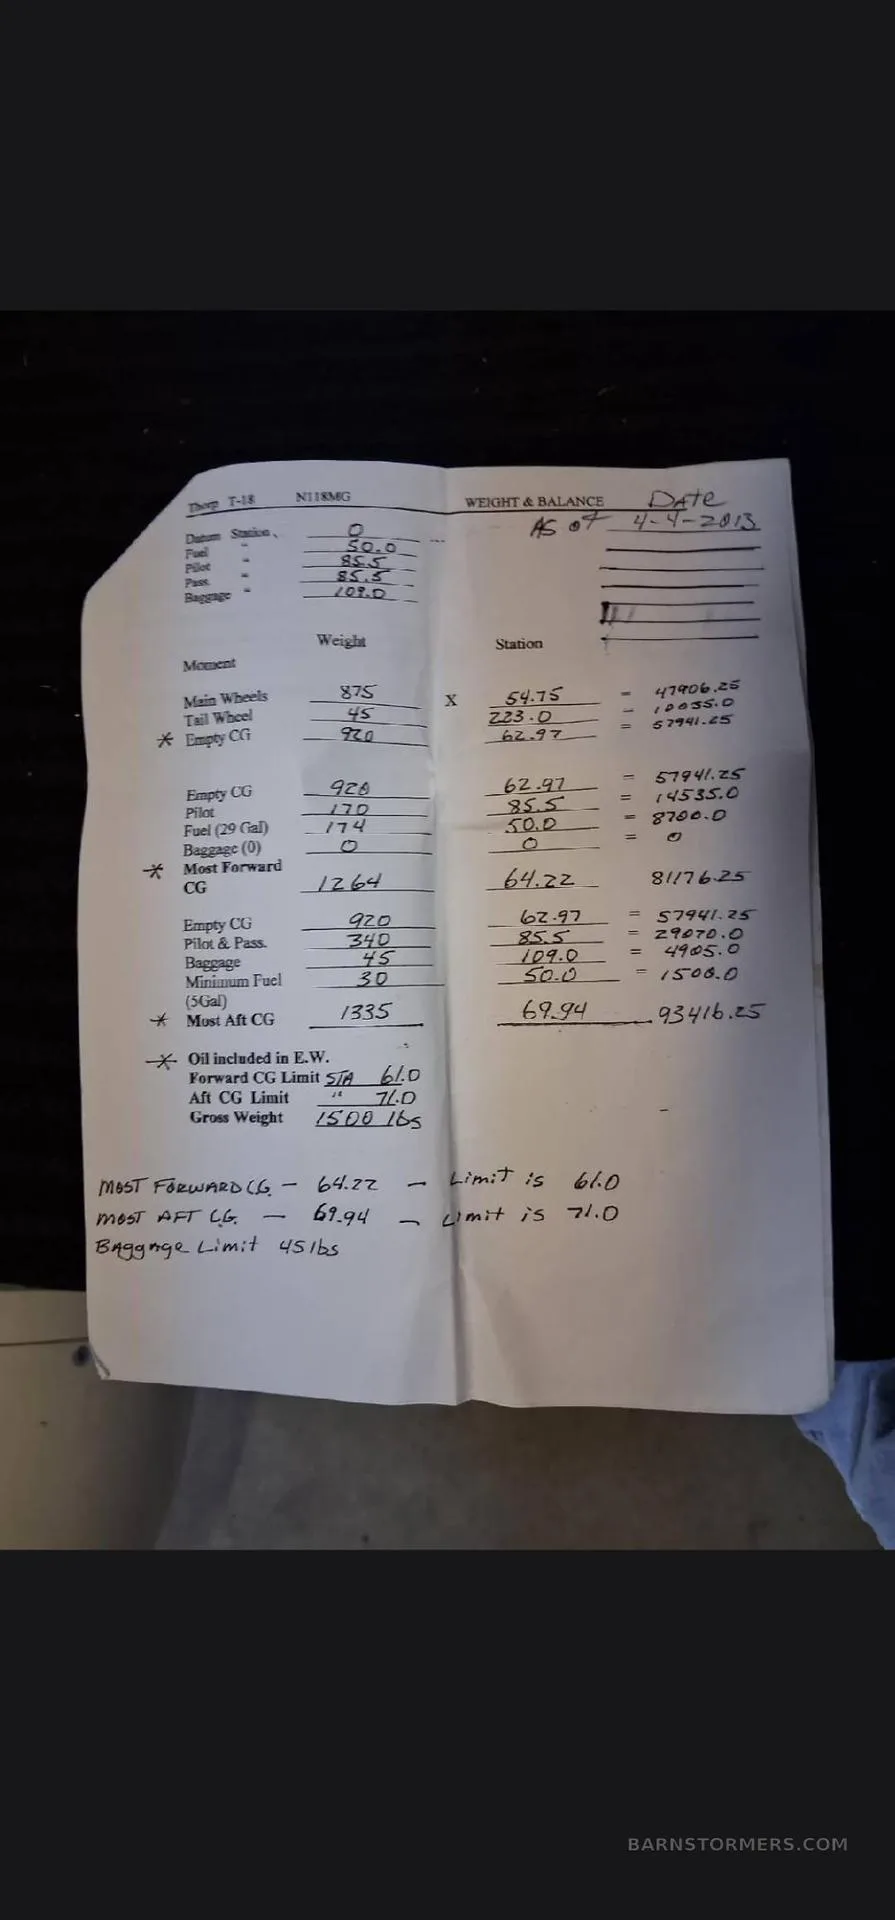 Thorp T-18 N118MG WEIGHT & BALANCE DATE
AS OF 4-4-2013
Datum Station 0
Fuel " 50.0
Pilot " 85.5
Pass. " 85.5
Baggage " 109.0
Weight Station
Moment
Main Wheels 875 X 54.75 = 47906.25
Tail Wheel 45 223.0 = 10035.0
* Empty CG 920 62.97 = 57941.25
Empty CG 920 62.97 = 57941.25
Pilot 170 85.5 = 14535.0
Fuel (29 Gal) 174 50.0 = 8700.0
Baggage (0) 0 0 = 0
* Most Forward
CG 1264 64.22 81176.25
Empty CG 920 62.97 = 57941.25
Pilot & Pass. 340 85.5 = 29070.0
Baggage 45 109.0 = 4905.0
Minimum Fuel 30 50.0 = 1500.0
(5Gal)
* Most Aft CG 1335 69.94 93416.25
* Oil included in E.W.
Forward CG Limit STA 61.0
Aft CG Limit " 71.0
Gross Weight 1500 lbs
MOST FORWARD C.G. - 64.22 - Limit is 61.0
MOST AFT C.G. - 69.94 - Limit is 71.0
Baggage Limit 45 lbs
BARNSTORMERS.COM